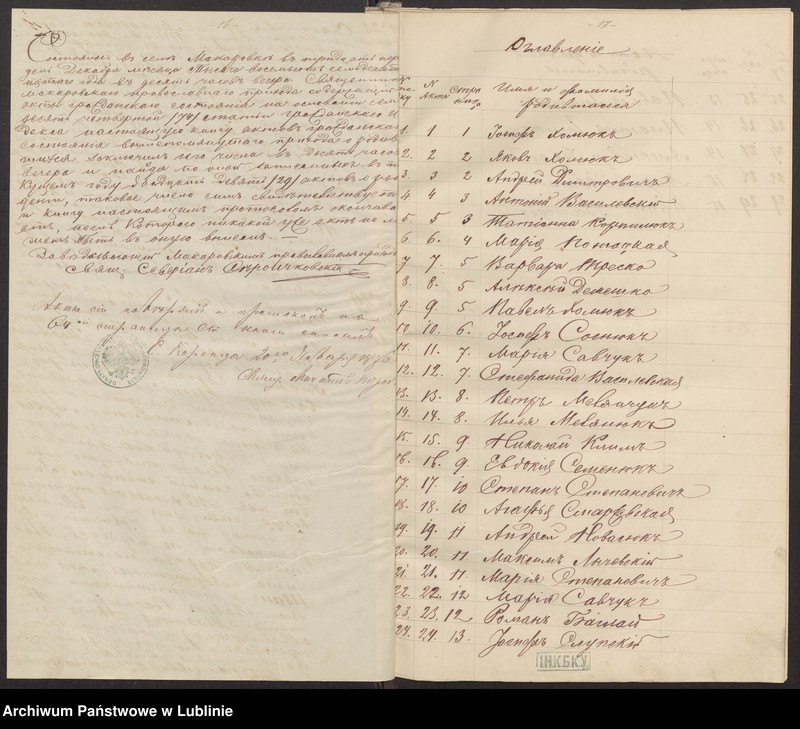 - 16 -
Состоялось въ селѣ Макаровкѣ въ тридцать пер
день Декабря мѣсяца тысяча восемьсотъ семьдесятъ
года въ десять часовъ вечера. Священникъ
макаровскаго православнаго прихода содержащій
акты гражданскаго состоянія на основаніи семь
десятъ четвертой /74/ статьи гражданскаго
декса настоящую книгу актовъ гражданскаго
состоянія вышеупомянутаго прихода о родив
шихся заключилъ сего числа въ десять часовъ
вечера и найдя по оной записанныхъ въ т
кущемъ году двадцать девять /29/ актовъ о рож
деніи, таковое число симъ свидѣтельствуетъ
и книгу настоящимъ протоколомъ оканчива
етъ, послѣ котораго никакой уже актъ не мо
жетъ быть въ оную внесенъ. —
Завѣдывающій Макаровскимъ православнымъ приходомъ
Свящ. Северіанъ
Акты сіи
страницу сей книги
2го Января 1876
- 17 -
Оглавленіе
N Акта Страница Имя и фамилія родившагося
1. 1 1 Іосифъ Хомюкъ
2. 2 2 Яковъ Хомюкъ
3. 3 2 Андрей Дмитровичъ
4 4 3 Антоній Василевскій
5 5 3 Татіанна Корпинюкъ
6 6. 4 Марія Потоцкая
7 7. 5 Варвара Креско
8. 8. 5 Алексѣй Демешко
9 9. 5 Павелъ Хомюкъ
10 10. 6. Іосифъ Соснюкъ
11. 11. 7. Марія Савчукъ
12. 12. 7. Стефанида Василевская
13. 13. 8. Петръ
14. 14. 8. Илья
15. 15. 9 Николай Климъ
16. 16. 9. Евдокія Семенюкъ
17. 17. 10 Степанъ Степановичъ
18. 18. 10 Агафья Смаржевская
19. 19. 11 Андрей Новасюкъ
20. 20. 11 Максимъ Лычевскій
21. 21. 11 Марія Степановичъ
22. 22. 12 Марія Савчукъ
23. 23. 12 Романъ Баглай
24. 24. 13. Іосифъ Слупскій
ІНКБКУ
Archiwum Państwowe w Lublinie